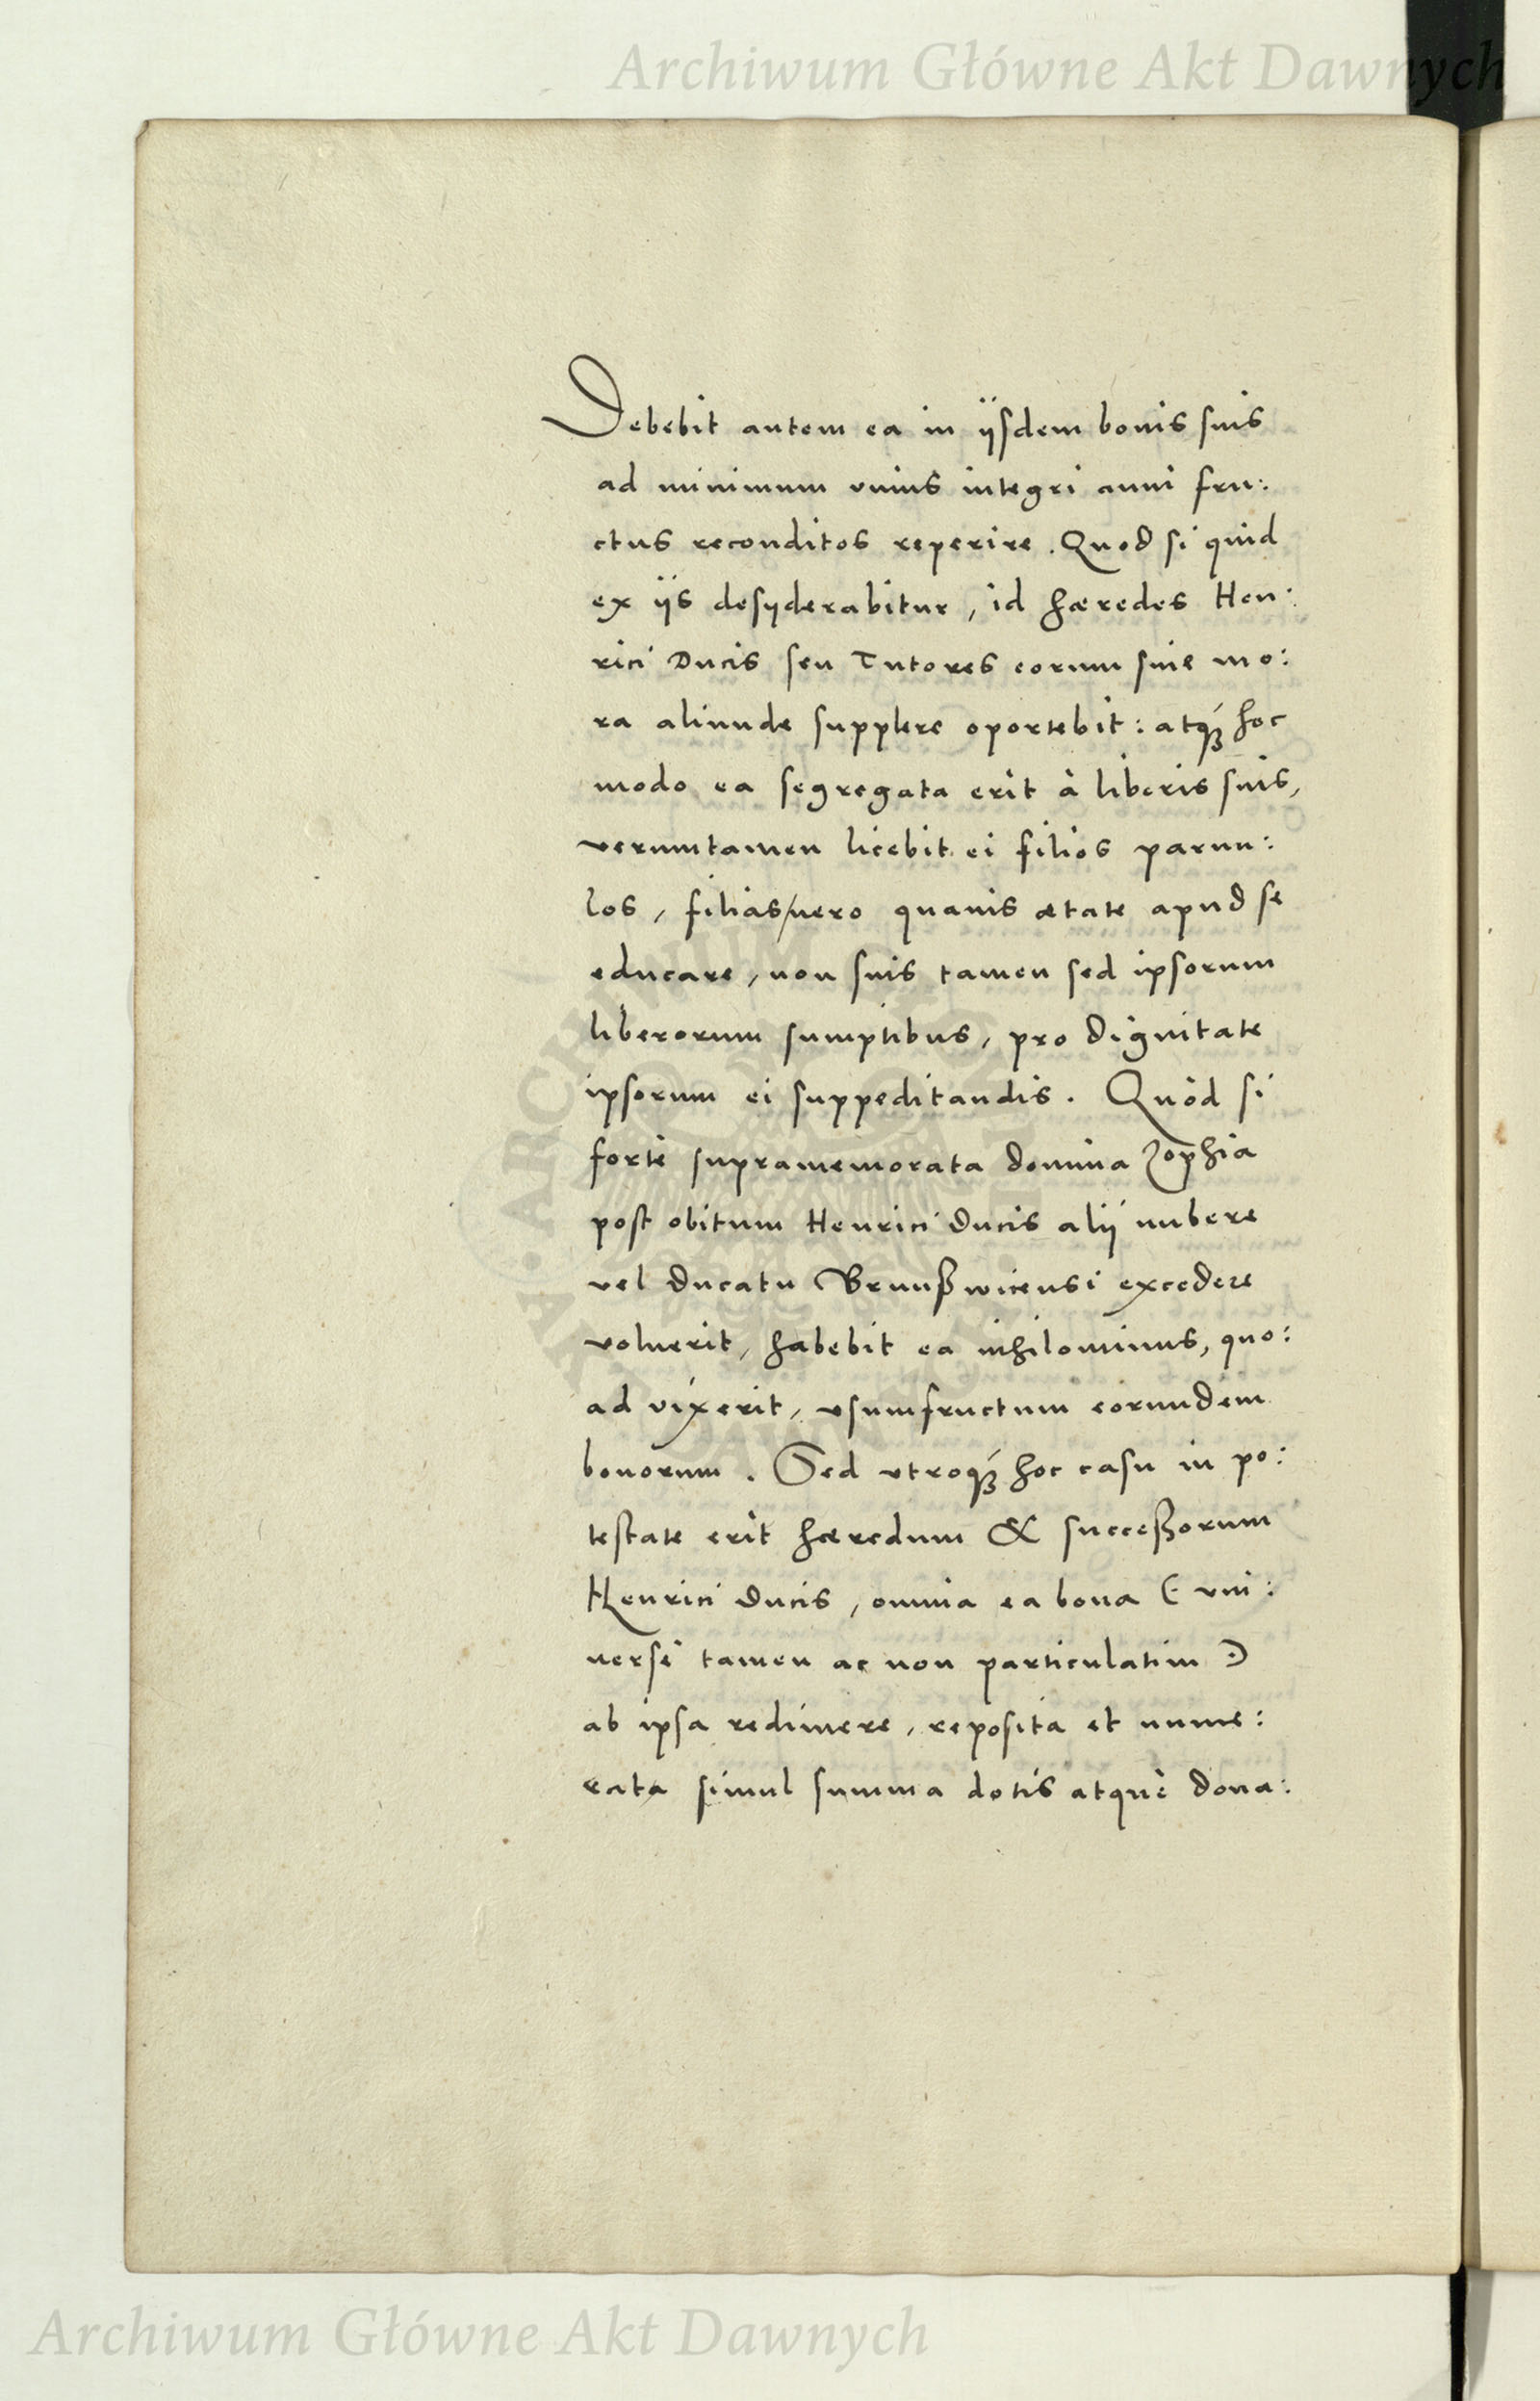 Archiwum Główne Akt Dawnych
Debebit autem ea in ijsdem bonis suis
ad minimum unius integri anni fru:
ctus reconditos reperire. Quod si quid
ex ijs desyderabitur, id hæredes Hen:
rici Ducis seu Tutores eorum sine mo:
ra aliunde supplere oportebit: atq́ꝫ hoc
modo ea segregata erit à liberis suis,
verumtamen licebit ei filios paruu:
los, filias/uero quauis ætate apud se
educare, non suis tamen sed ipsorum
liberorum sumptibus, pro dignitate
ipsorum ei suppeditandis. Quòd si
fortè supramemorata domina Zophia
post obitum Henrici Ducis alij nubere
vel Ducatu Brunßwicensi excedere
voluerit, habebit ea nihilominus, quo:
ad vixerit, vsumfructum eorundem
bonorum. Sed vtroq́ꝫ hoc casu in po:
testate erit hæredum & succeßorum
Henrici Ducis, omnia ea bona (: vni:
uersè tamen ac non particulatim :)
ab ipsa redimere, reposita et nume:
rata simul summa dotis atquè dona:
ARCHIWUM GŁÓWNE AKT DAWNYCH
Archiwum Główne Akt Dawnych